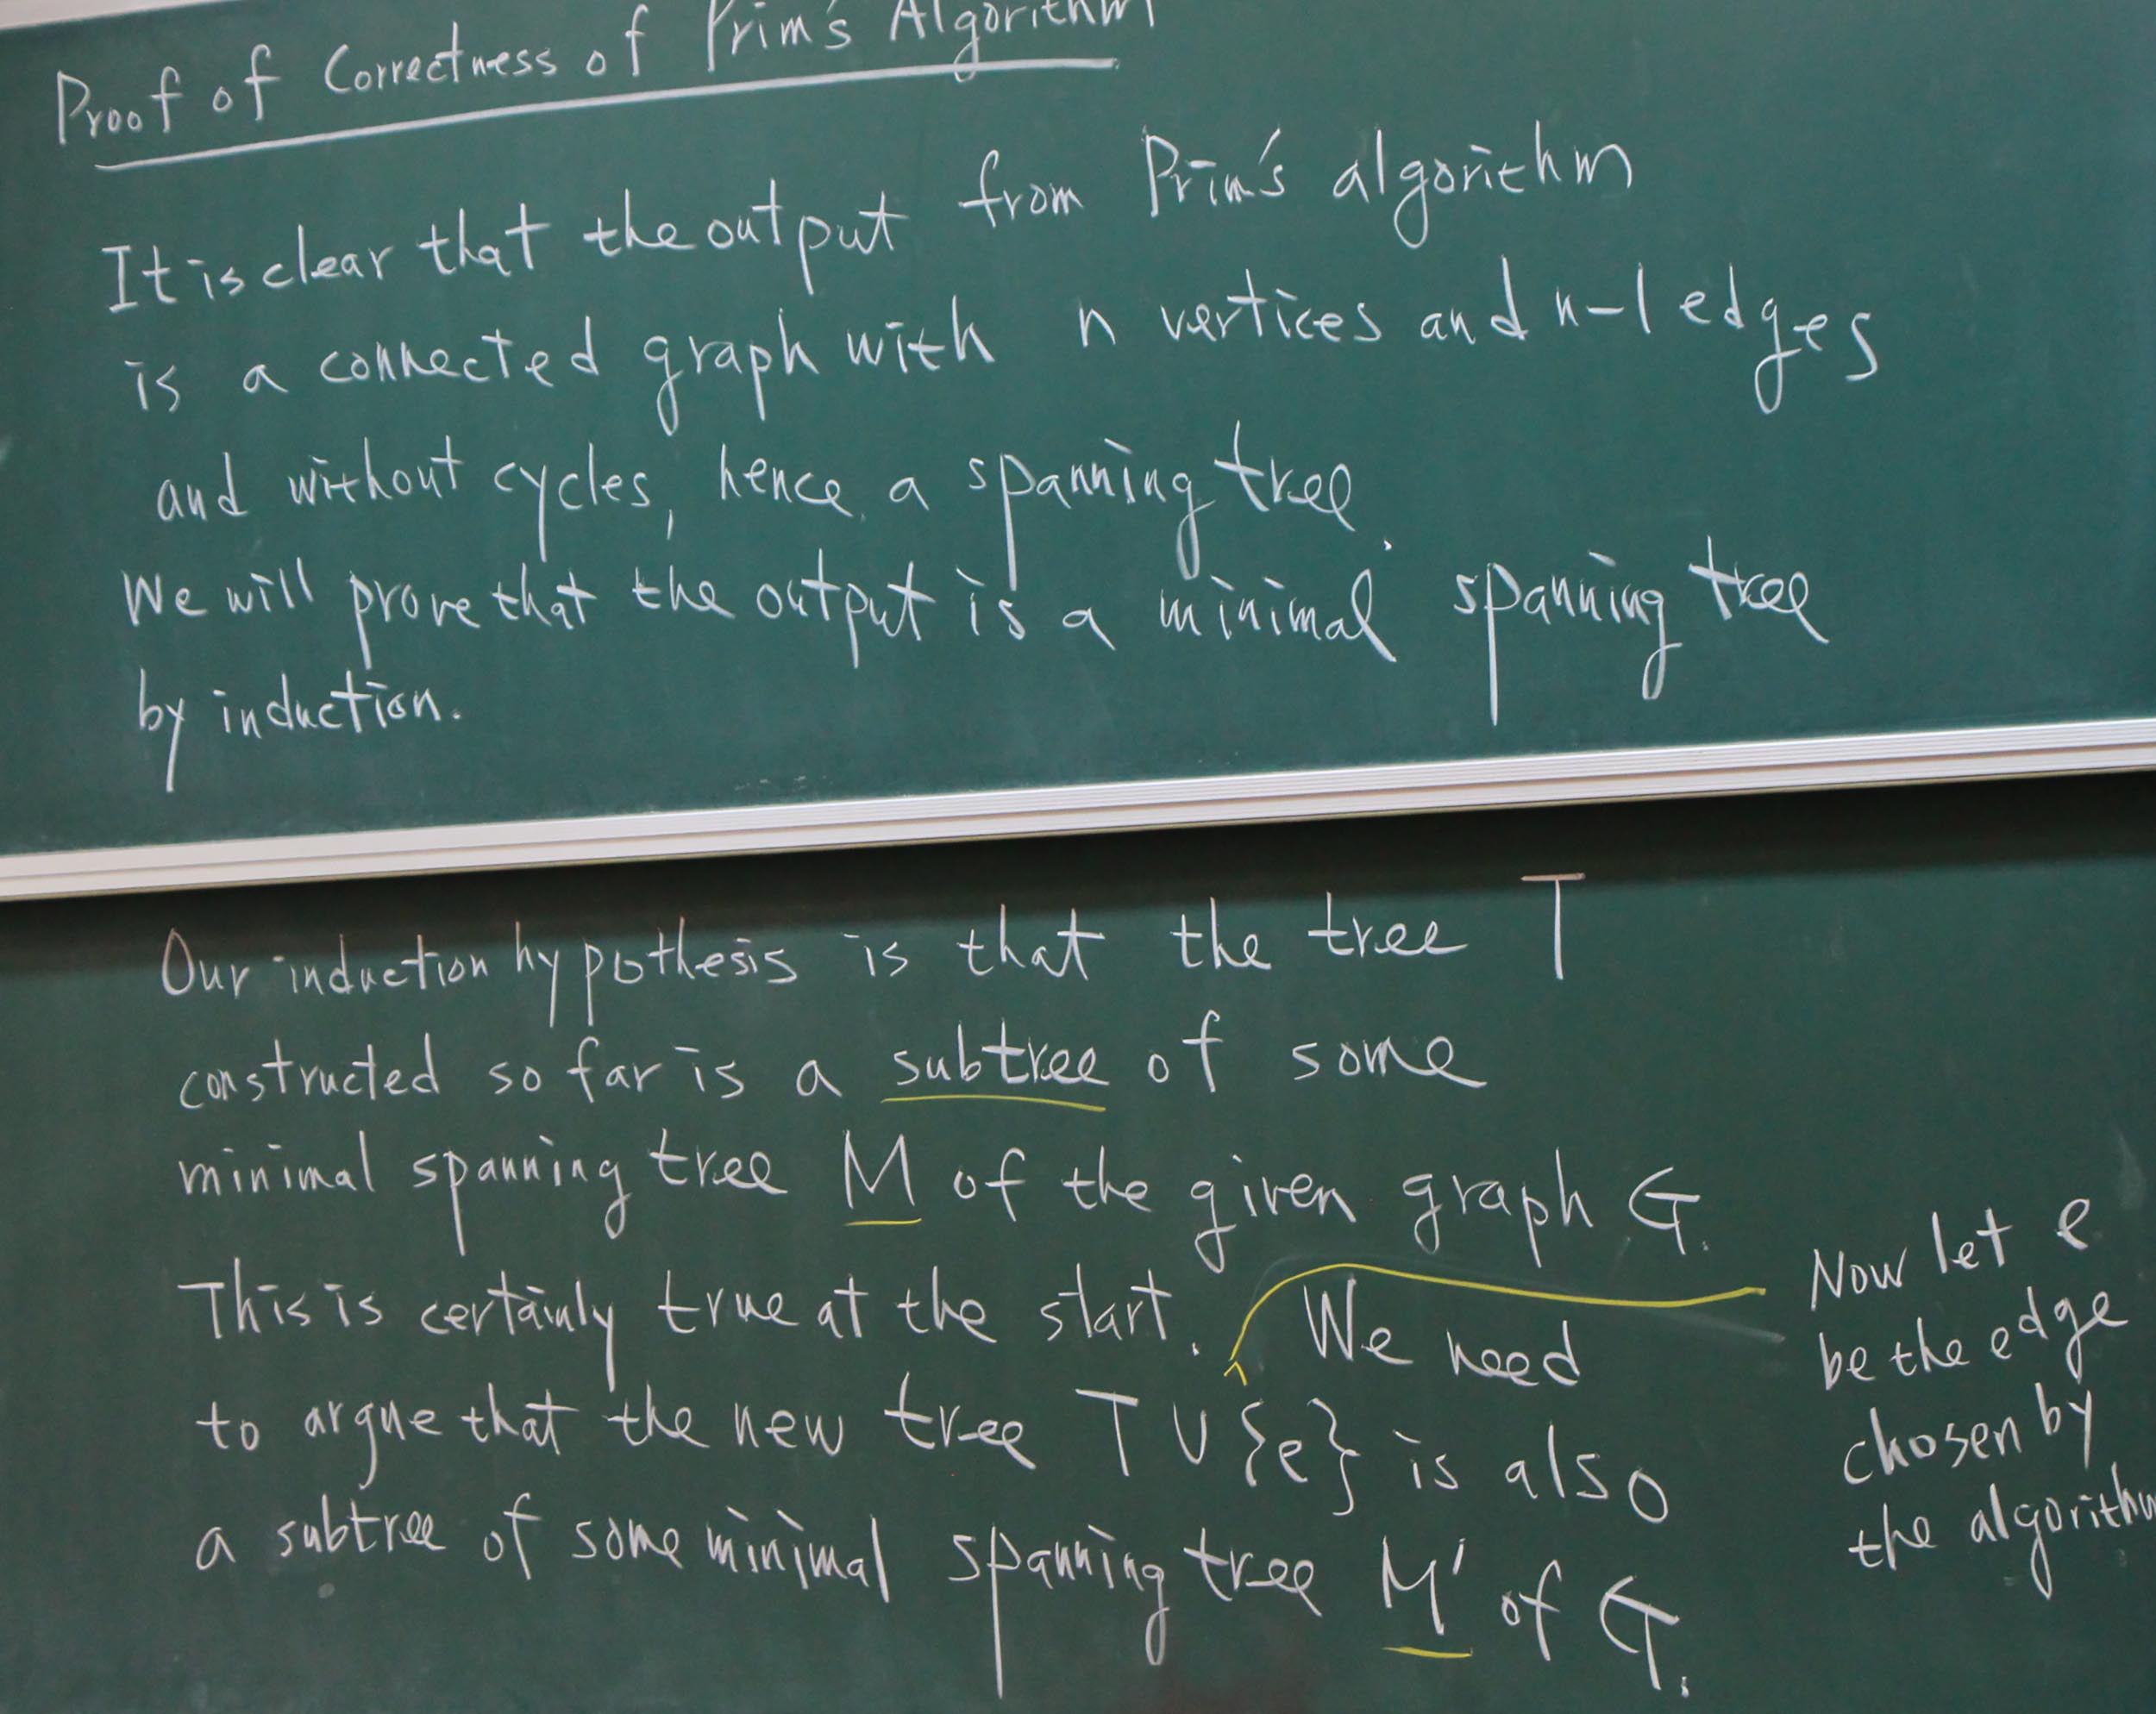 Proof of Correctness of Prim's Algorithm
It is clear that the output from Prim's algorithm
is a connected graph with n vertices and n-1 edges
and without cycles, hence a spanning tree.
We will prove that the output is a minimal spanning tree
by induction.
Our induction hypothesis is that the tree T
constructed so far is a subtree of some
minimal spanning tree M of the given graph G.
This is certainly true at the start. We need
to argue that the new tree T ∪ {e} is also
a subtree of some minimal spanning tree M' of G.
Now let e
be the edge
chosen by
the algorithm